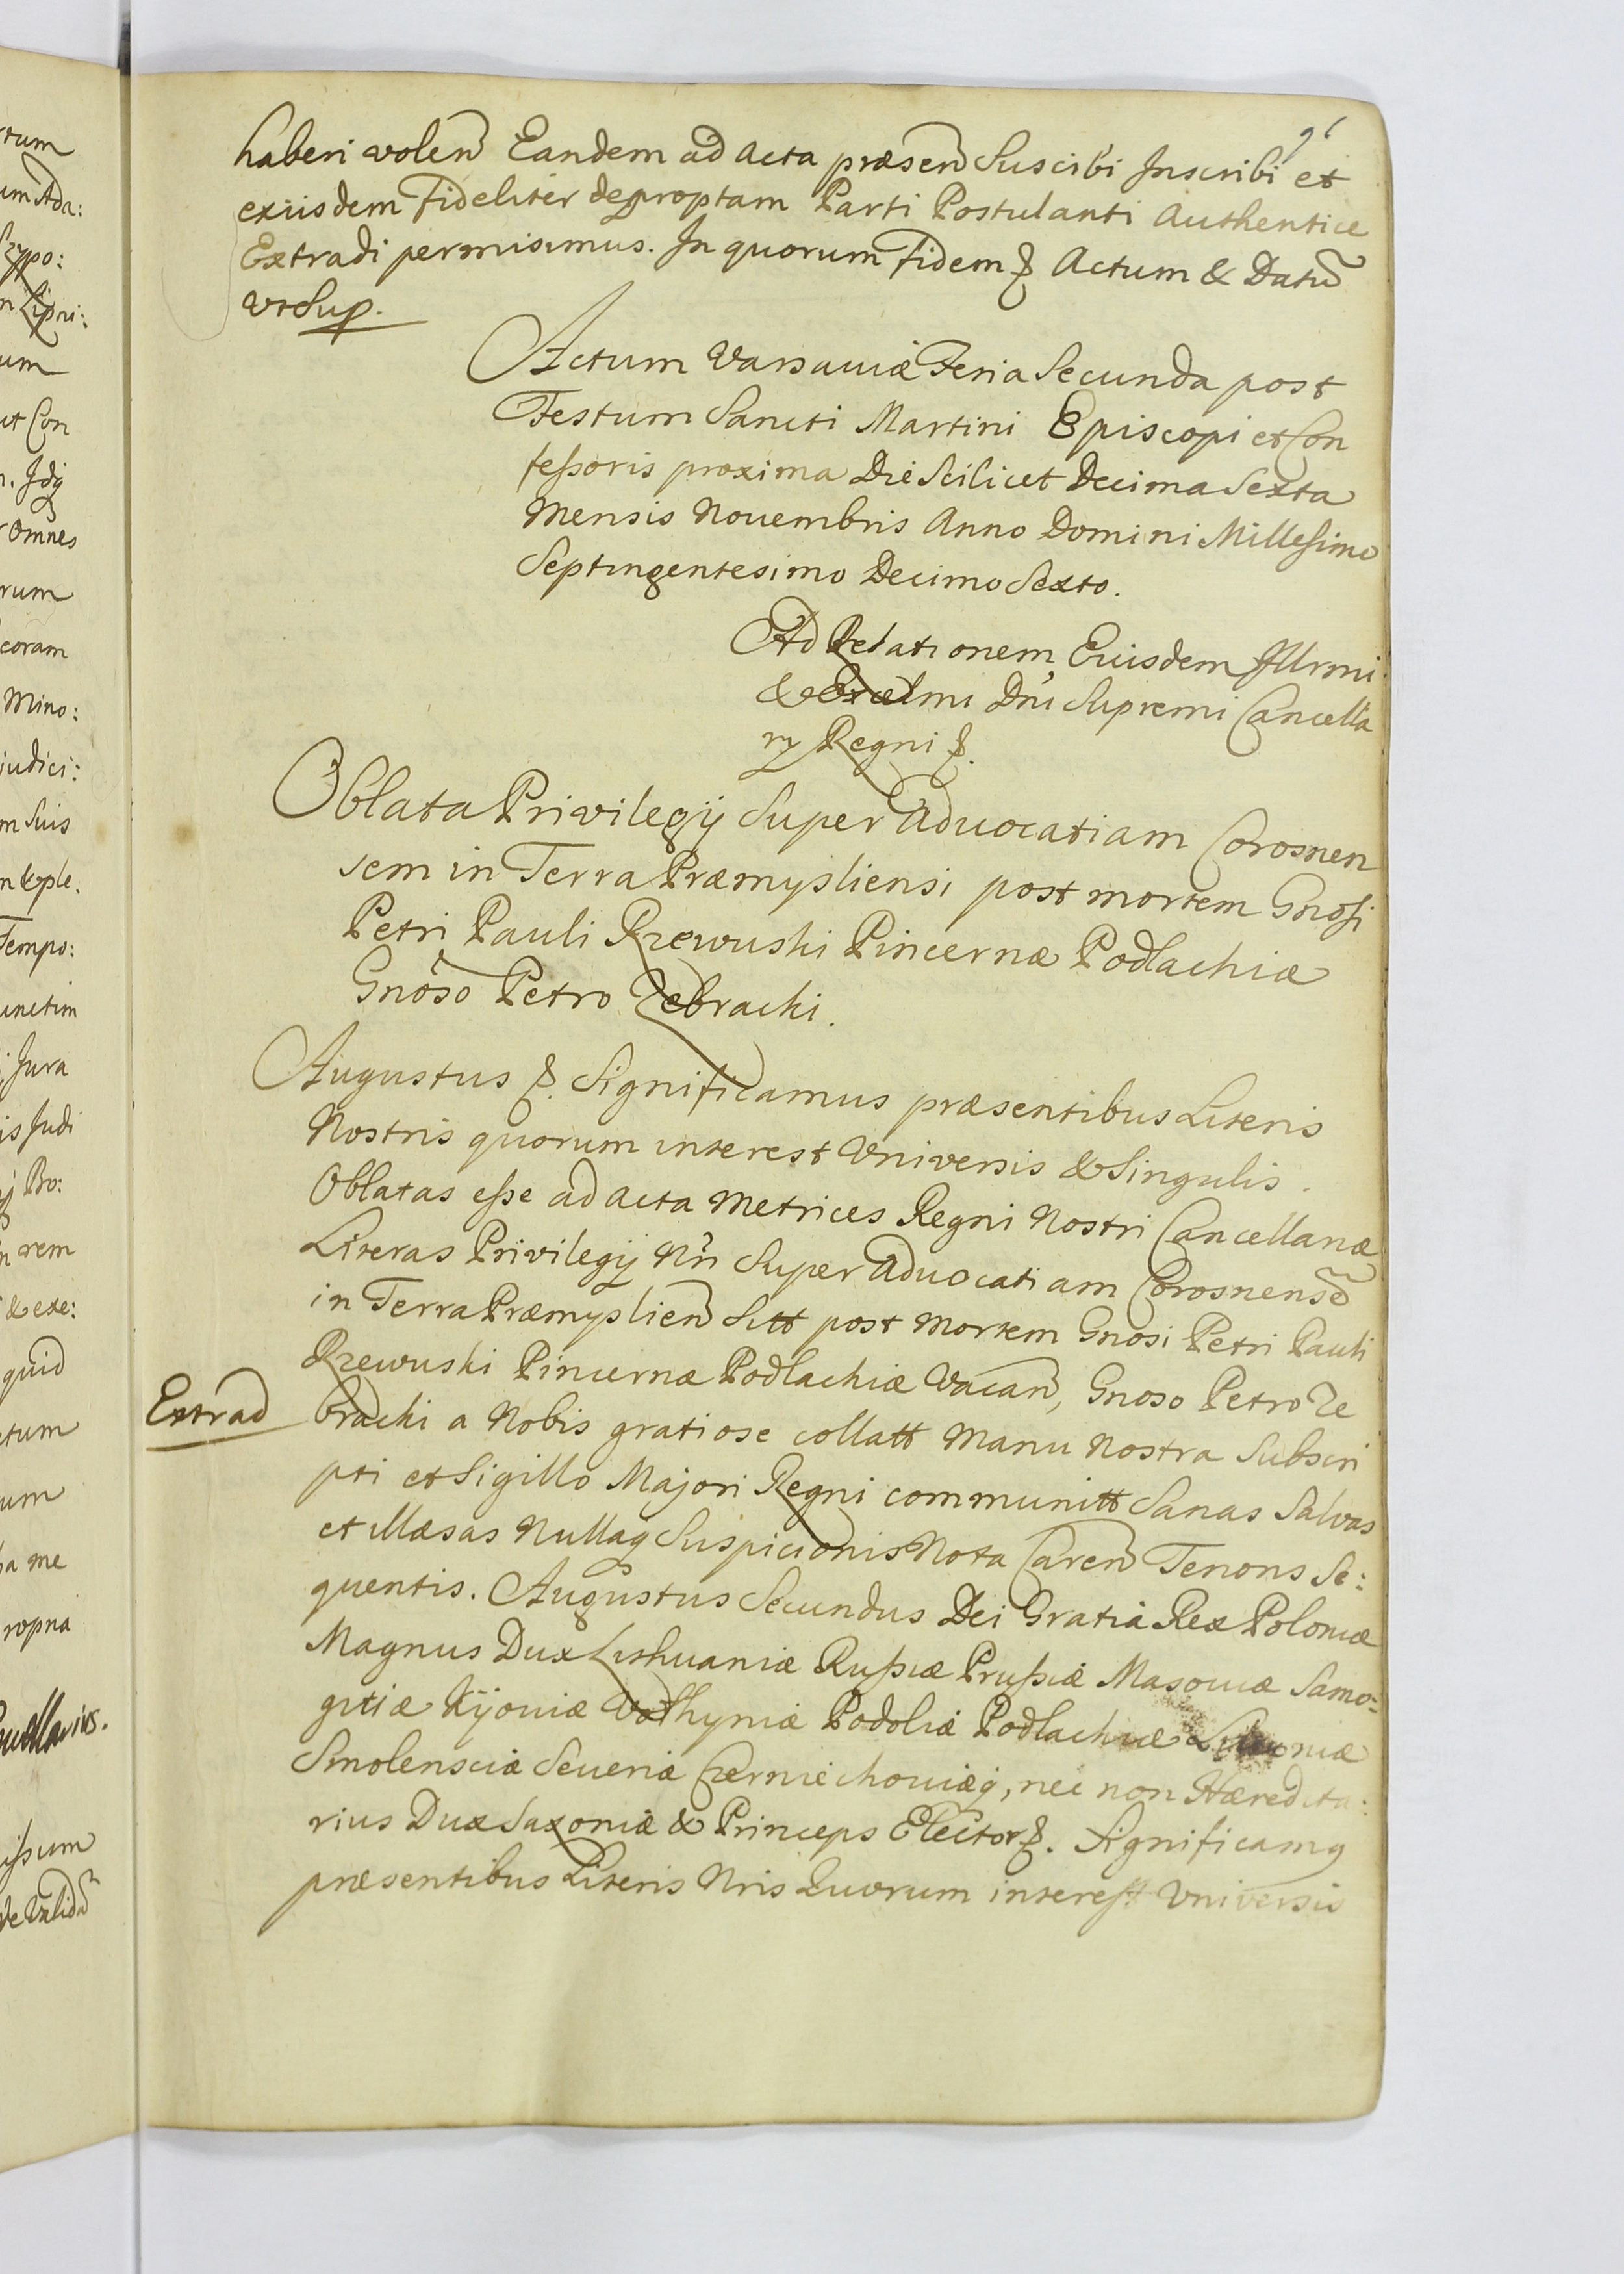 haberi volen Eandem ad Acta præsen Suscibi Inscribi et
exiisdem fideliter depromptam Parti Postulanti Authentice
Extradi permisimus. In quorum fidem & Actum & Datū
vtSup.
Actum Varsaviæ Feria Secunda post
Festum Sancti Martini Episcopi et Con
fessoris proxima Die Scilicet Decima Sexta
Mensis Nouembris Anno Domini Millesimo
Septingentesimo Decimo Sexto.
Ad Relationem Eiusdem Illrmi
& Excelmi Dni Supremi Cancella
ry Regni &.
Oblata Privilegij Super Aduocatiam Corosnen
sem in Terra Præmysliensi post mortem Gnosi
Petri Pauli Rzewuski Pincernæ Podlachiæ
Gnoso Petro Zebracki.
Augustus &. Significamus præsentibus Literis
Nostris quorum interest Vniversis & Singulis.
Oblatas esse ad acta Metrices Regni Nostri Cancellariæ
Literas Privilegij Nri Super Aduocatiam Corosnensē
in Terra Præmyslien Sitt post Mortem Gnosi Petri Pauli
Rzewuski Pincernæ Podlachiæ Vacan, Gnoso Petro Ze
Extrad
bracki a Nobis gratiose collatt Manu Nostra Subscri
pti et Sigillo Majori Regni communitt Sanas Salvas
et illæsas Nullaq Suspicionis Nota Caren Tenoris Se:
quentis. Augustus Secundus Dei Gratia Rex Poloniæ
Magnus Dux Lithuaniæ Russiæ Prussiæ Masoviæ Samo=
gitiæ Kijoviæ Volhyniæ Podoliæ Podlachiæ Livoniæ
Smolensciæ Seueriæ Czerniechouiæq, nec non Hæredita:
rius Dux Saxoniæ & Princeps Elector &. Significamq
præsentibus Literis Nris Quorum interest Vniversis